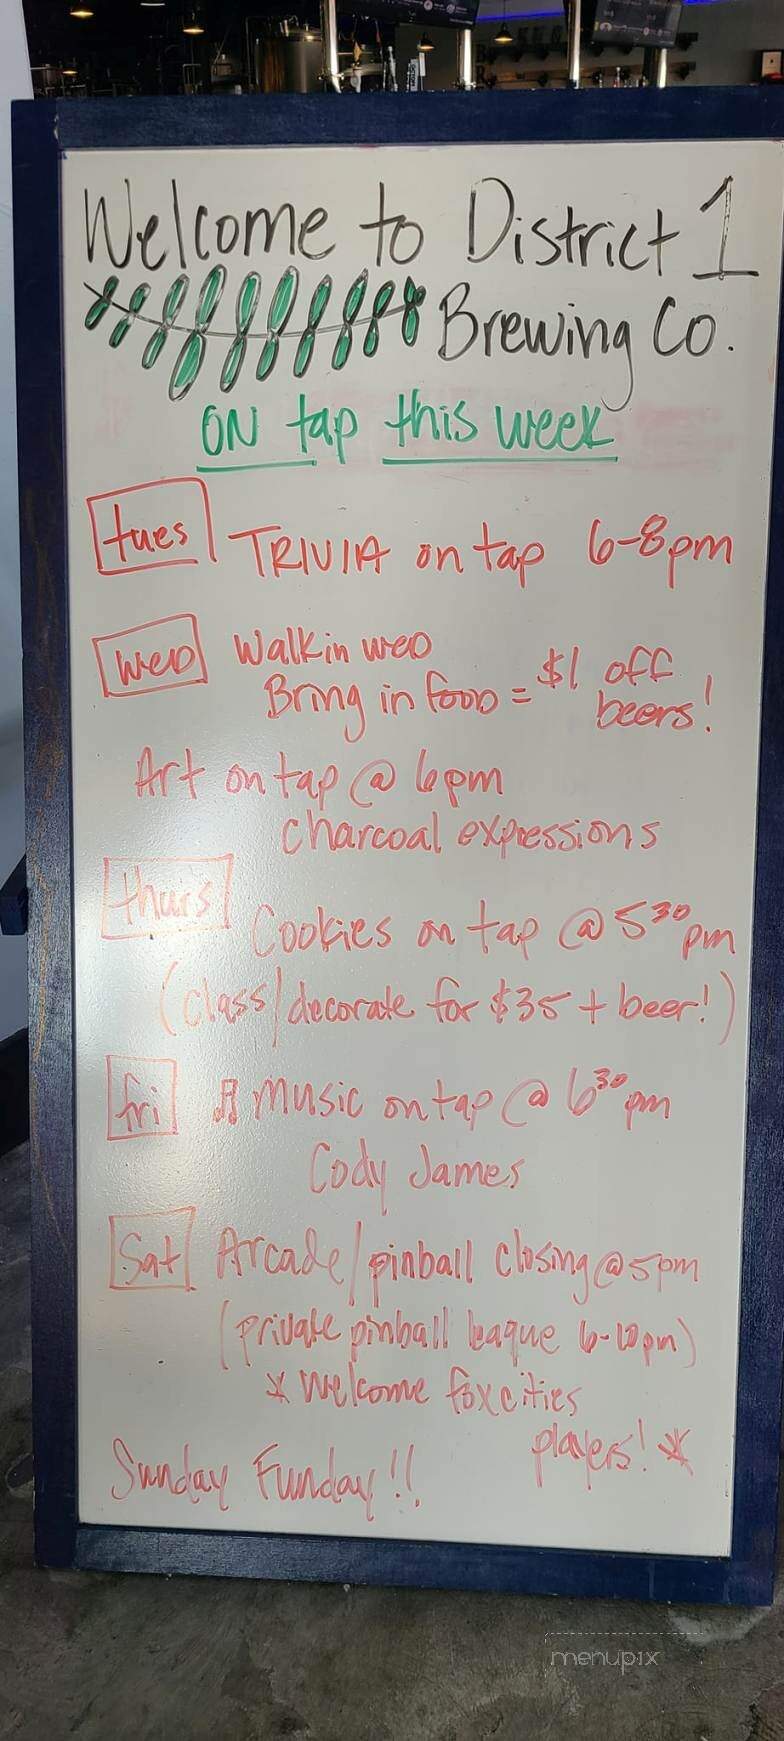 Welcome to District 1
Brewing Co.
ON tap this week
tues TRIVIA on tap 6-8pm
wed Walkin wed
Bring in food = $1 off
beers!
Art on tap @ 6pm
charcoal expressions
thurs Cookies on tap @ 5³⁰pm
(class/decorate for $35 + beer!)
fri ♫ music on tap @ 6³⁰pm
Cody James
Sat Arcade/pinball closing @ 5pm
(private pinball league 6-10pm)
* Welcome foxcities
players! *
Sunday Funday!!
menupix